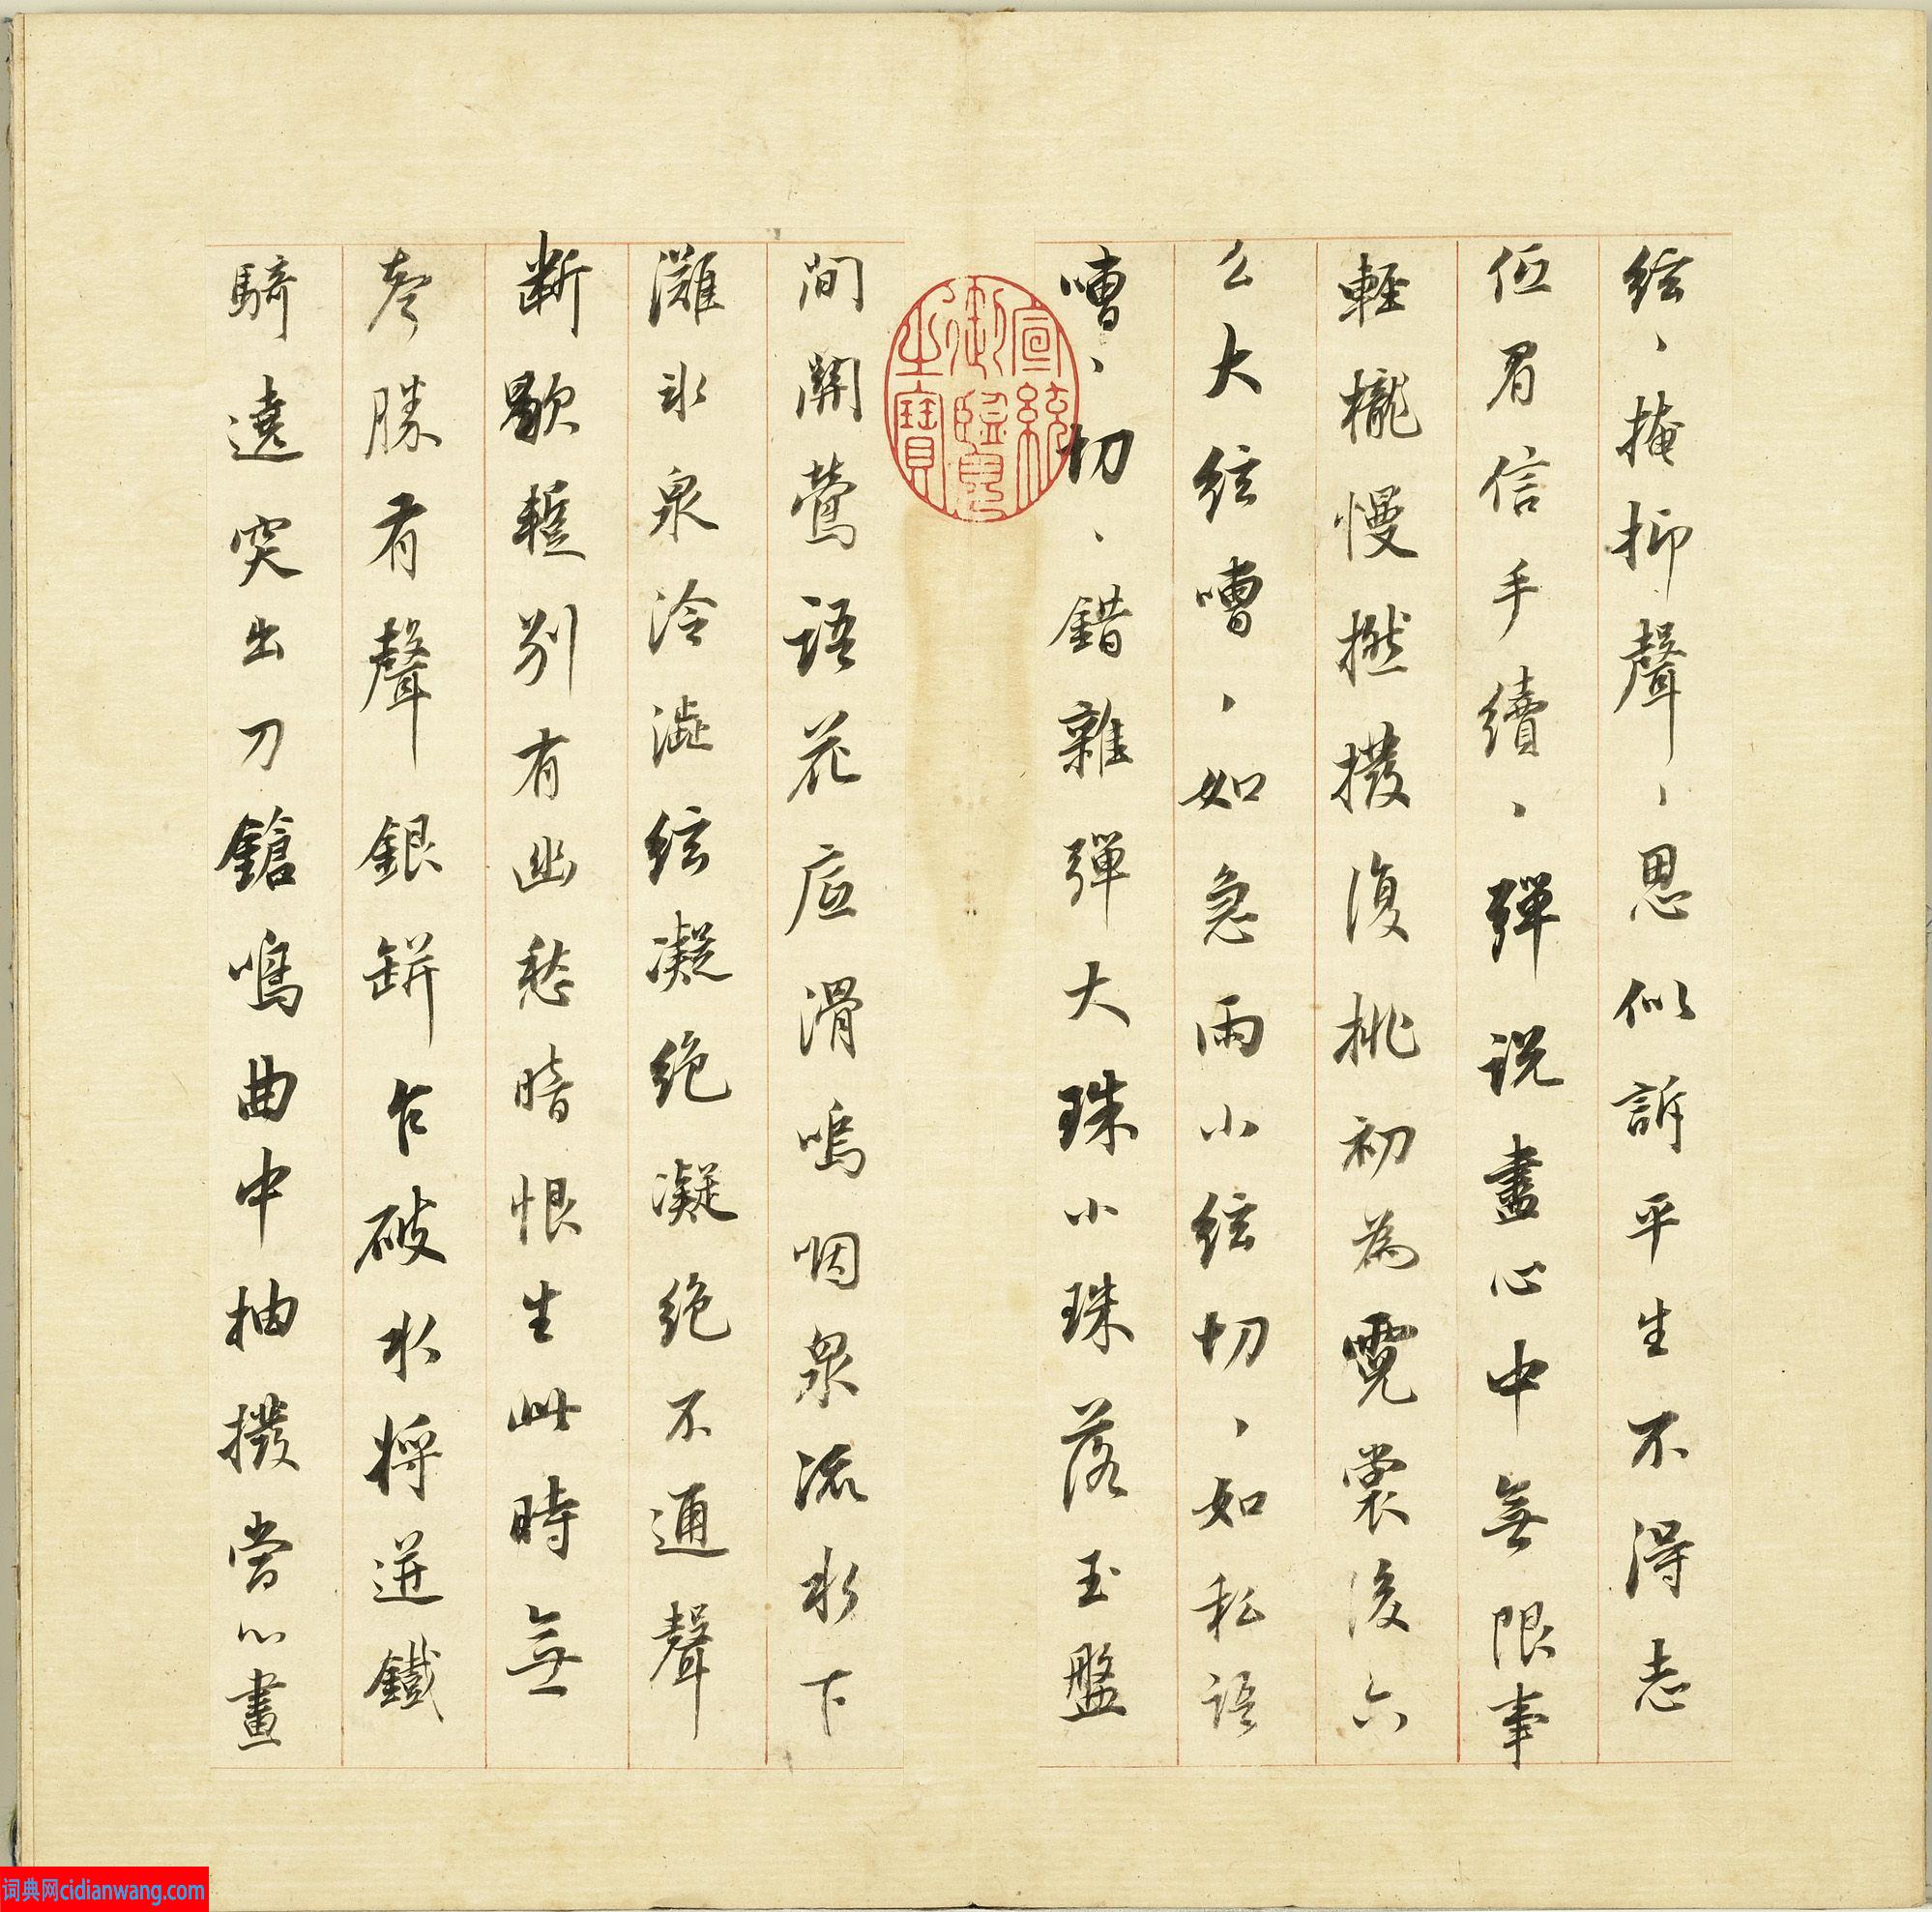 絃、掩抑聲、思似訴平生不得志
低眉信手續、彈説盡心中無限事
輕攏慢撚撥復挑初為霓裳後六
么大絃嘈、如急雨小絃切、如私語
嘈、切、錯雜彈大珠小珠落玉盤
間關鶯語花底滑嗚咽泉流水下
灘氷泉冷澁絃凝絶凝絶不通聲
斷歇蹔別有幽愁暗恨生此時無
聲勝有聲銀缾乍破水將迸鐵
騎遶突出刀鎗鳴曲中抽撥當心畫
宣統御覽之寶
词典网cidianwang.com